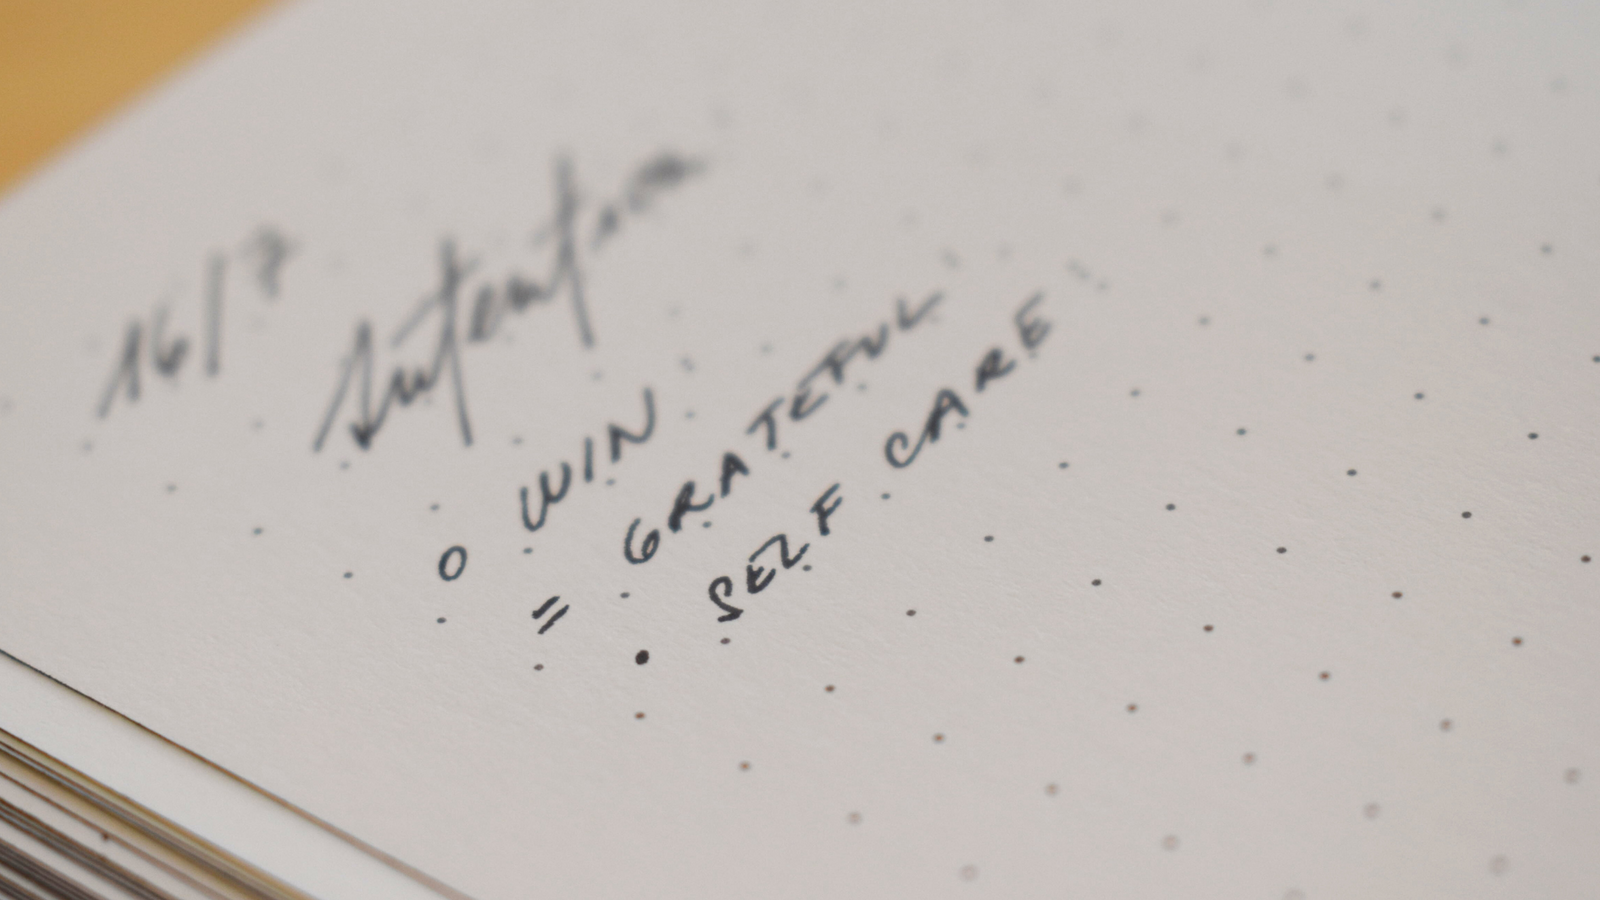 16/7
Intention
O WIN
= GRATEFUL
• SELF CARE